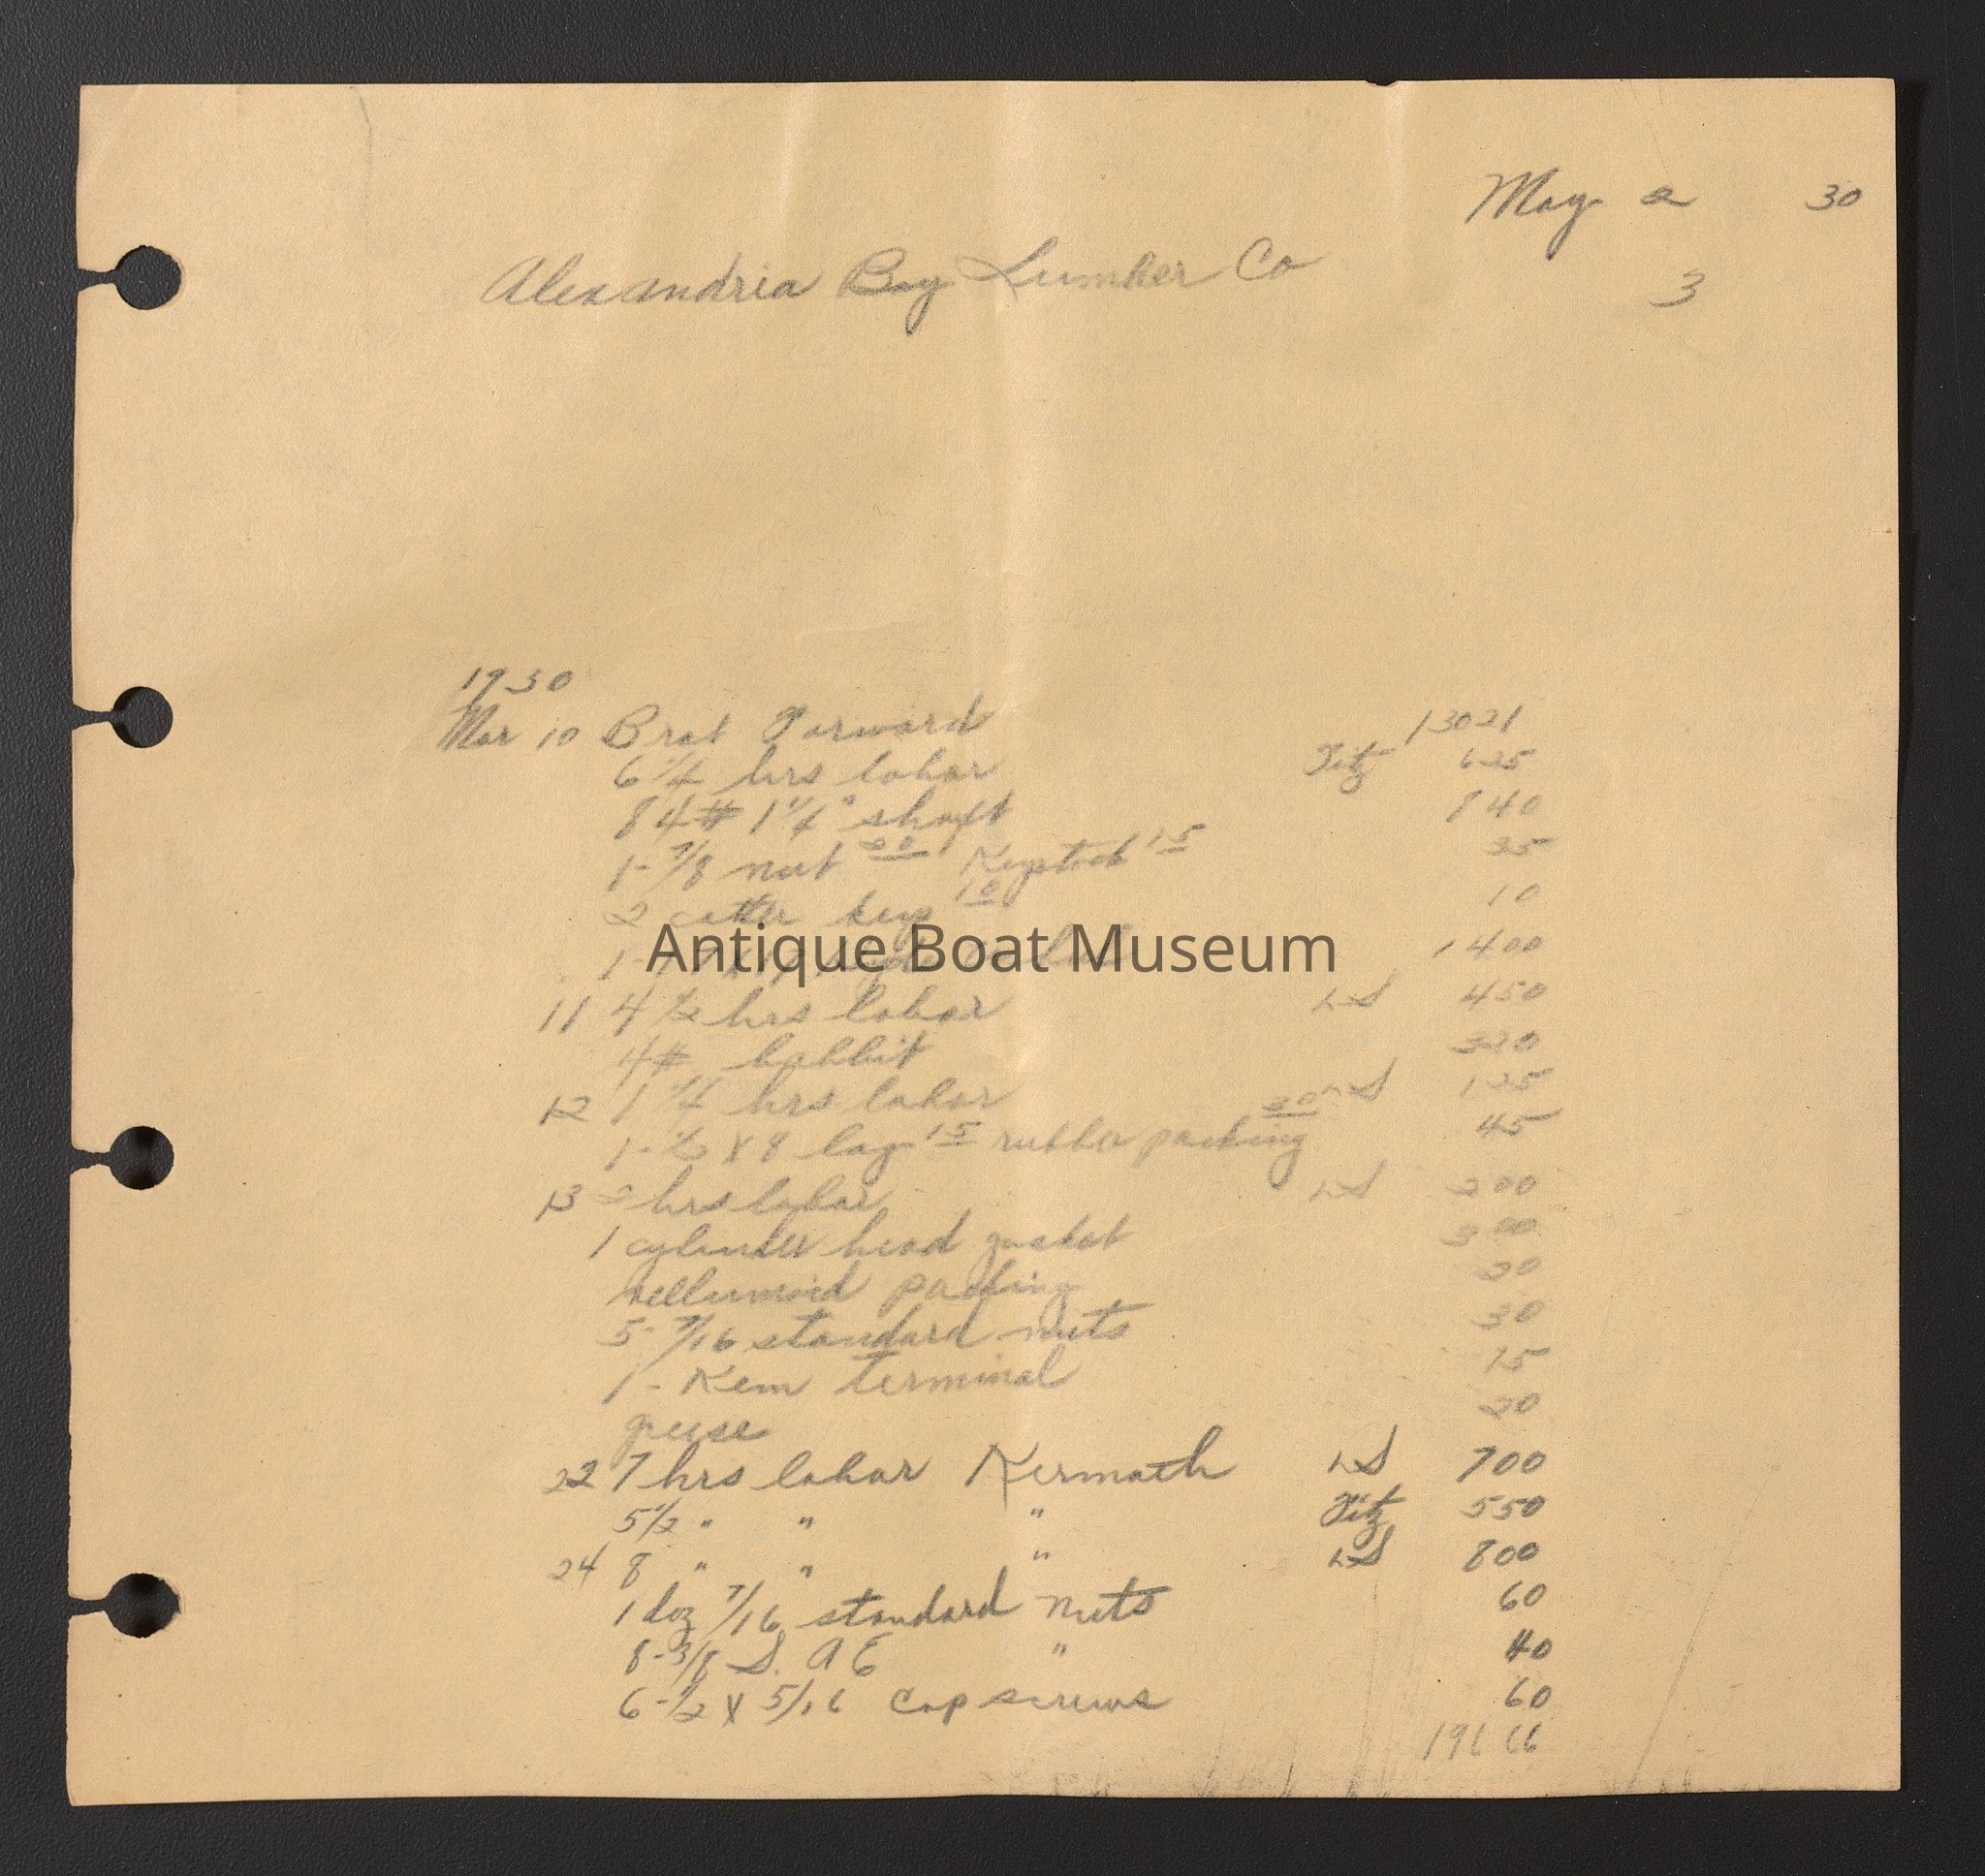 May 2 30
Alexandria Bay Lumber Co
3
1930
Mar 10 Brot Forward 13021
6 1/4 hrs labor Fitz 625
84# 1 1/4" shaft 840
1-7/8 nut 20 Keystock 15 35
2 cotter keys 10 10
1- 1400
Antique Boat Museum
11 4 1/2 hrs labor LS 450
4# babbit 320
12 1 1/4 hrs labor LS 125
1-1/2 x 8 lag 15 rubber packing 30 45
13 2 hrs labor LS 200
1 cylinder head gasket 300
vellumoid packing 20
5-7/16 standard nuts 30
1-Kem terminal 15
grease 20
22 7 hrs labor Kermath LS 700
5 1/2 " " " Fitz 550
24 8 " " " LS 800
1 doz 7/16 standard nuts 60
8-3/8 S.A E " 40
6-1/2 x 5/16 cap screws 60
196 66